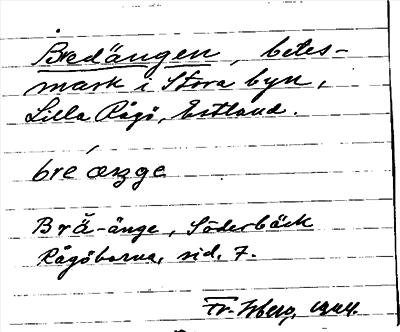 Bredängen, betes-
mark i Stora byn,
Lilla Rågö, Estland.
bre ænge
Brä-änge, Söderbäck
Rågöborna, sid. 7.
Fr. Isberg, 1924.